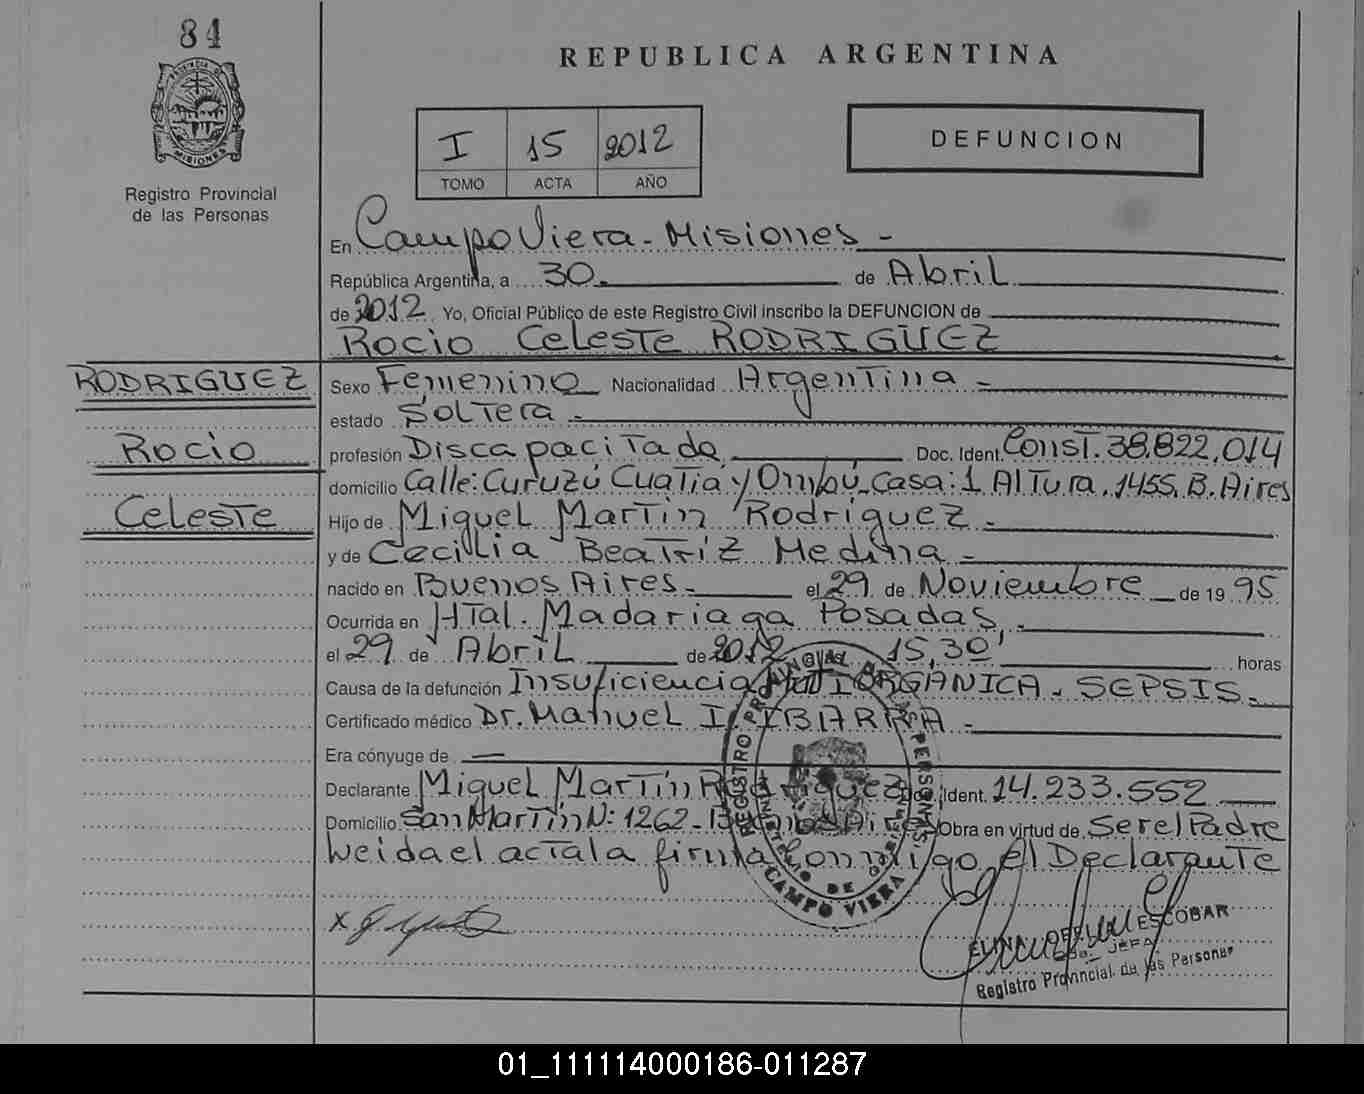 84
REPUBLICA ARGENTINA
PROVINCIA DE
MISIONES
Registro Provincial
de las Personas
I 15 2012
TOMO ACTA AÑO
DEFUNCION
En Campo Viera - Misiones -
República Argentina, a 30. de Abril
de 2012 Yo, Oficial Público de este Registro Civil inscribo la DEFUNCION de
Rocio Celeste RODRIGUEZ
RODRIGUEZ
Rocio
Celeste
Sexo Femenino Nacionalidad Argentina -
estado Soltera -
profesión Discapacitada Doc. Ident. Const. 38.822.014
domicilio Calle: Curuzú Cuatia y Ombú Casa: 1 Altura. 1455. B. Aires
Hijo de Miguel Martin Rodriguez -
y de Cecilia Beatriz Medina -
nacido en Buenos Aires - el 29 de Noviembre de 19 95
Ocurrida en Htal. Madariaga Posadas, -
el 29 de Abril de 2012 15,30' horas
Causa de la defunción Insuficiencia ORGANICA - SEPSIS -
Certificado médico Dr. Manuel I. IBARRA -
Era cónyuge de —
Declarante Miguel Martín Rodriguez Doc. Ident. 14.233.552
Domicilio San Martín N: 1262 - Buenos Aires Obra en virtud de Ser el Padre
Leida el acta la firma Conmigo el Declarante
REGISTRO PROVINCIAL DE LAS PERSONAS
MINISTERIO DE GOBIERNO
CAMPO VIERA
x
ESCOBAR
JEFA
Registro Provincial de las Personas
01_111114000186-011287